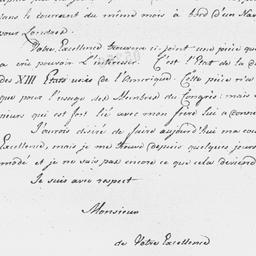 dans le courant du même mois à bord d'un Nav
pour Londres.
Votre Excellence trouvera ci joint une pièce que
a cru pouvoir L'intéresser. C'est l'Etat de la d
des XIII Etats unis de l'Amérique. Cette pièce n'es
que pour l'usage des Membres du Congrès: mais
sieurs qui est fort lié avec mon frère lui a donn
J'aurois désiré de faire aujourd'hui ma cou
Excellence, mais je me trouve depuis quelques jours
modé et je ne sais pas encore ce que cela deviend
Je suis avec respect
Monsieur
de Votre Excellence